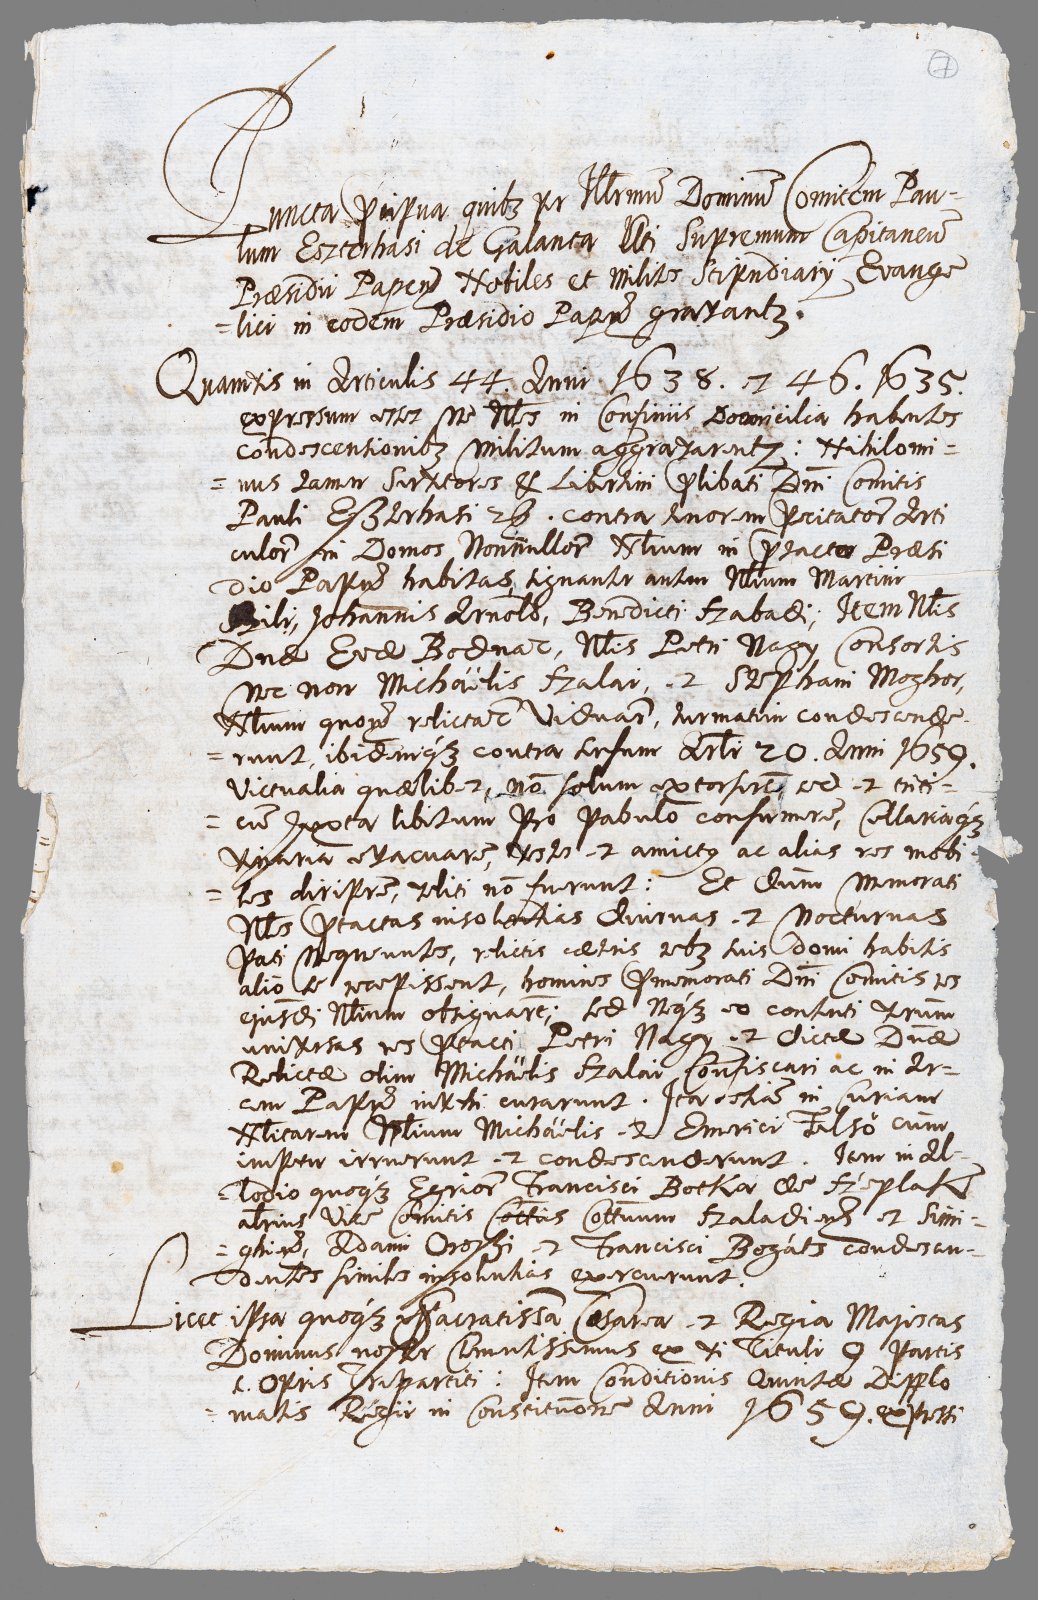 7
Puncta pcipua quibz pr Illrmũ Dominũ Comitem Pau-
lum Eszterhasi de Galanta Uti Supremum Capitaneũ
Præsidii Papeñ Nobiles et Milites Stipendiarij Evange
=lici in eodem Præsidio Papeñ gravantz.
Quamvis in Articulis 44. Anni 1638. et 46. 1635.
expressum esset Ne Nbles in Confiniis Domicilia habentes
condescensionibz Militum aggravarentz: Nihilomi=
=nus tamen Servitores et Libertini plibati Dni Comitis
Pauli Eszterhasi contra tenorem pcitator Arti
culor in Domos Nonnullor Nblium in ptacto Præsi
dio Papeñ habitas, signanter autem Nblium Martini
Johannis Arnold, Benedicti Szabadi, Item Nblis
Dnæ Evæ Bodnar, Nblis Petri Nagy Consortis
Nec non Michäelis Szalai, et Stephani Moghor,
Nblium quoqɜ relictar Viduar, turmatim condescende-
=runt, ibidemqɜ contra sensum Artli 20. Anni 1659.
Victualia quælibet, nõ solum extorserẽ, sed et triti=
=cũ Juxta libitum pro pabulo consumere, Cellariaqɜ
vinaria evacuarẽ, vestes et amictus ac alias res mobi
=les diriperẽ, veliti nõ fuerunt: Et dum Memorati
Nbles ptactas insolentias diurnas et Nocturnas
pati Nequeuntes, relictis cætris rebz suis domi habitis
aliò se recepissent, homines pmemorati Dni Comitis res
ejusdẽ Nblium obsignarẽt; sed Neqɜ eo contenti verum
universas res ptacti Petri Nagy et dictæ Dnæ
Relictæ olim Michäelis Szalai Confiscari ac in Ar-
cem Papeñ invehi curarunt. Ita etiã in Curiam
Nblitarem Nblium Michäelis et Emerici Felső cum
impetu irruerunt et condescenderunt. Item in Al-
=lodio quoqɜ Egrior Francisci Botka de Széplak
altrius Vice Comitis Cottuum Szaladieñ et Simi=
=ghieñ, Adami Orophi et Francisci Bogáts condescen-
dentes similes insolentias exercuerunt.
Licet ipsa quoqɜ Sacratissa Cæsarea et Regia Majestas
Dominus noster Clementissimus ex vi Tituli 9 Partis
1. Opris Tripartiti: Item Conditionis Quintæ Dipplo
=matis Regii in Constitutione Anni 1659. expressi